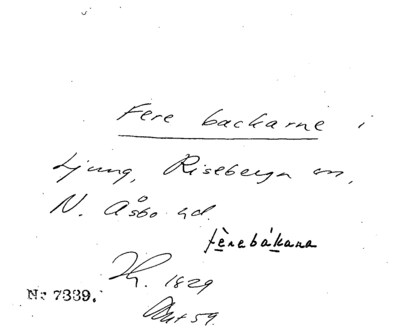 Fere backarne i
Ljung, Riseberga sn,
N. Åsbo hd.
fèrebákana
1829
Nr 7339.
59.